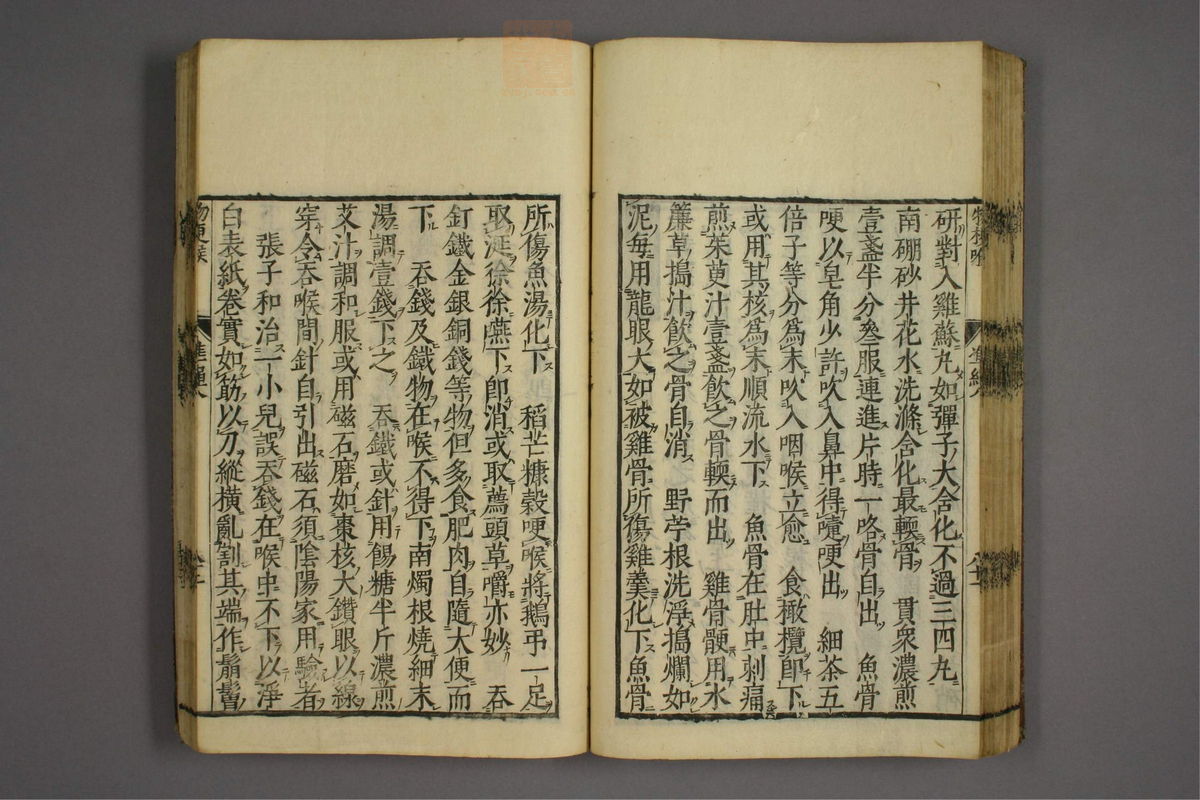 研對入雞蘇丸如彈子大含化不過三四丸
南硼砂井花水洗滌含化最輭骨　貫衆濃煎
壹盞半分叄服連進片時一咯骨自出　魚骨
哽以皂角少許吹入鼻中得嚏哽出　細茶五
倍子等分爲末吹入咽喉立愈　食橄欖即下
或用其核爲末順流水下　魚骨在肚中刺痛
煎茱萸汁壹盞飲之骨輭而出　雞骨骾用水
簾草搗汁飲之骨自消　野苧根洗浮搗爛如
泥每用龍眼大如被雞骨所傷雞羹化下魚骨
所傷魚湯化下　稻芒糠穀哽喉將鵝弔一足
取涎徐徐嚥下即消或取薦頭草嚼亦妙　吞
釘鐵金銀銅錢等物但多食肥肉自隨大便而
下　吞錢及鐵物在喉不得下南燭根燒細末
湯調壹錢下之　吞鐵或針用餳糖半斤濃煎
艾汁調和服或用磁石磨如棗核大鑽眼以線
穿令吞喉間針自引出磁石須陰陽家用驗者
張子和治一小兒誤吞錢在喉中不下以淨
白表紙卷實如筯以刀縱橫亂割其端作鬅鬙